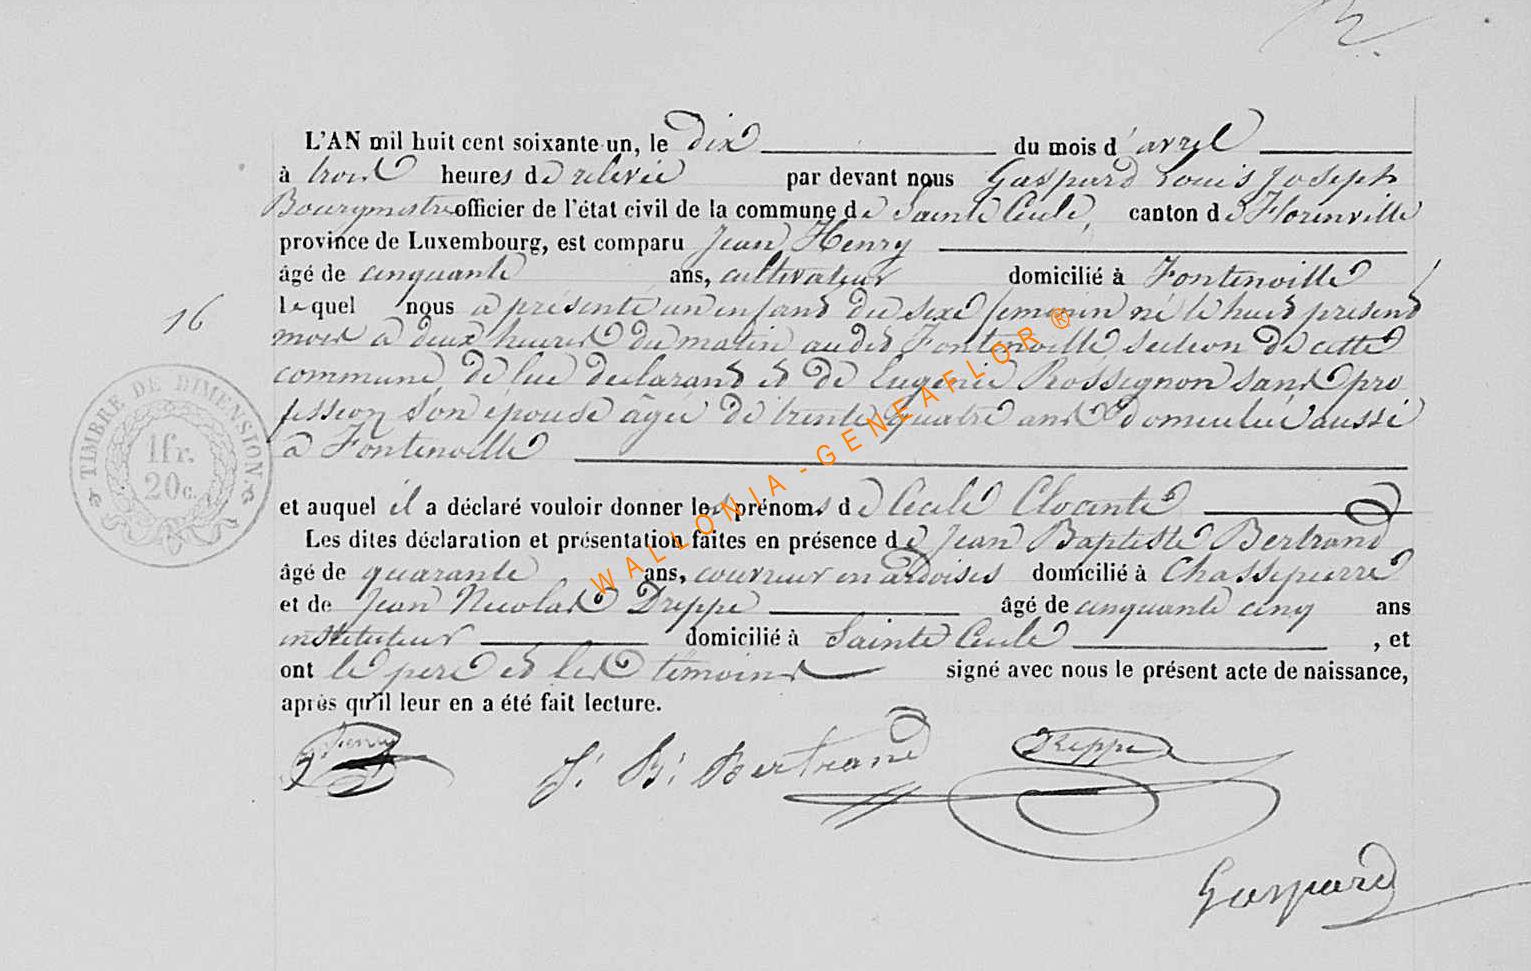 L'AN mil huit cent soixante un, le dix du mois d'avril
à trois heures de relevée par devant nous Gaspard Louis Joseph
Bourgmestre officier de l'état civil de la commune de Sainte Cecile, canton de Florenville
province de Luxembourg, est comparu Jean Henry
âgé de cinquante ans, cultivateur domicilié à Fontenoille
lequel nous a présenté un enfant du sexe femenin né le huit présent
16
mois a deux heures du matin audit Fontenoille section de cette
commune, de lui declarant et de Eugenie Rossignon sans pro
fession son epouse âgée de trente quatre ans domiciliée aussi
a Fontenoille
TIMBRE DE DIMENSION
1fr.
20c.
et auquel il a déclaré vouloir donner les prénoms de Cecile
Les dites déclaration et présentation faites en présence de Jean Baptiste Bertrand
âgé de quarante ans, couvreur en ardoises domicilié à Chassepierre
et de Jean Nicolas Dreppe âgé de cinquante cinq ans
instituteur domicilié à Sainte Cecile , et
ont le pere et les témoins signé avec nous le présent acte de naissance,
après qu'il leur en a été fait lecture.
J. Henry J. B. Bertrand Dreppe
Gaspard
WALLONIA - GENEAFLOR ®